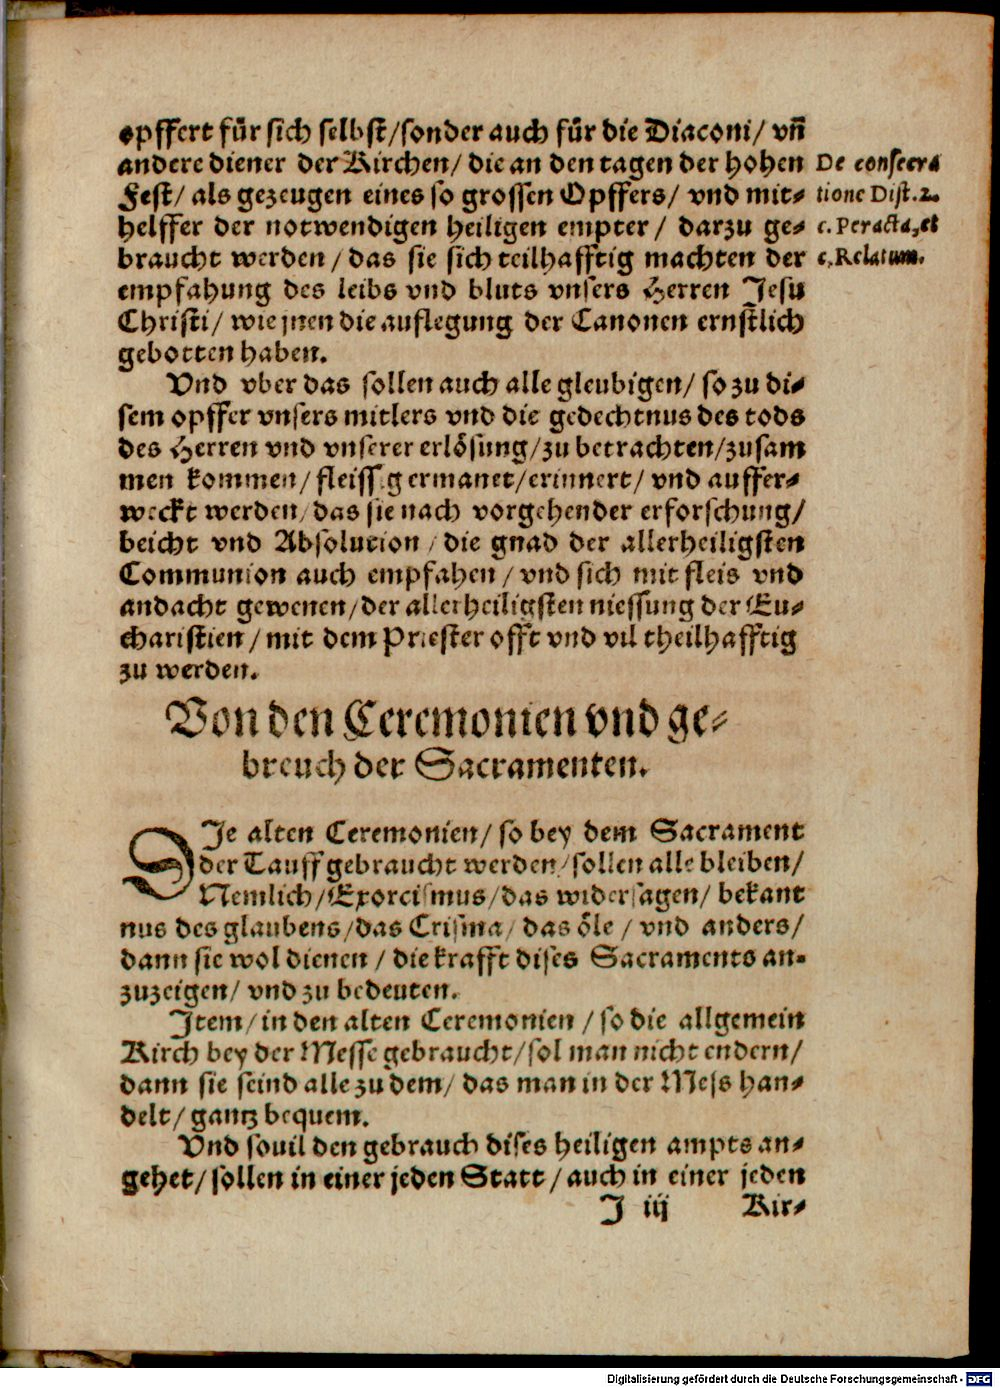 opffert für sich selbst/sonder auch für die Diaconi/ vñ
andere diener der Kirchen/ die an den tagen der hohen
Fest/ als gezeugen eines so grossen Opffers/ vnd mit-
helffer der notwendigen heiligen empter/ darzu ge-
braucht werden/ das sie sich teilhafftig machten der
empfahung des leibs vnd bluts vnsers Herren Jesu
Christi/ wie jnen die auflegung der Canonen ernstlich
gebotten haben.
De consecra
tione Dist. 2.
c. Peracta, et
c. Relatum.
Vnd vber das sollen auch alle gleubigen/ so zu di-
sem opffer vnsers mitlers vnd die gedechtnus des tods
des Herren vnd vnserer erlösung/zu betrachten/zusam
men kommen/ fleissig ermanet/erinnert/ vnd auffer-
weckt werden/das sie nach vorgehender erforschung/
beicht vnd Absolution/die gnad der allerheiligsten
Communion auch empfahen/ vnd sich mit fleis vnd
andacht gewenen/der allerheiligsten niessung der Eu-
charistien/ mit dem Priester offt vnd vil theilhafftig
zu werden.
Von den Ceremonien vnd ge-
breuch der Sacramenten.
DJe alten Ceremonien/ so bey dem Sacrament
der Tauff gebraucht werden/sollen alle bleiben/
Nemlich/Exorcismus/das widersagen/ bekant
nus des glaubens/das Crisma/ das öle/ vnd anders/
dann sie wol dienen/ die krafft dises Sacraments an-
zuzeigen/ vnd zu bedeuten.
Jtem/in den alten Ceremonien/ so die allgemein
Kirch bey der Messe gebraucht/sol man nicht endern/
dann sie seind alle zu dem/ das man in der Mess han-
delt/ gantz bequem.
Vnd souil den gebrauch dises heiligen ampts an-
gehet/sollen in einer jeden Statt/auch in einer jeden
J iij Kir-
Digitalisierung gefördert durch die Deutsche Forschungsgemeinschaft - DFG